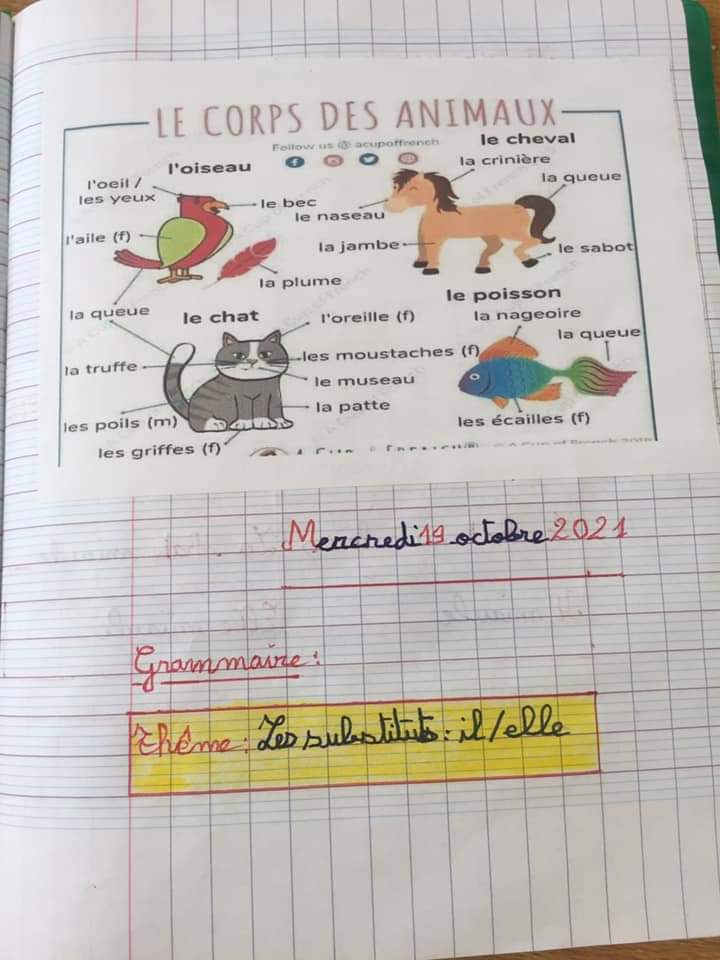 LE CORPS DES ANIMAUX
Follow us @ acupoffrench
l'oiseau
l'oeil /
les yeux
le bec
l'aile (f)
la plume
la queue
le cheval
la crinière
la queue
le naseau
la jambe
le sabot
le chat
l'oreille (f)
les moustaches (f)
la truffe
le museau
la patte
les poils (m)
les griffes (f)
le poisson
la nageoire
la queue
les écailles (f)
Mercredi 19 octobre 2021
Grammaire :
Thême : Les substituts : il/elle